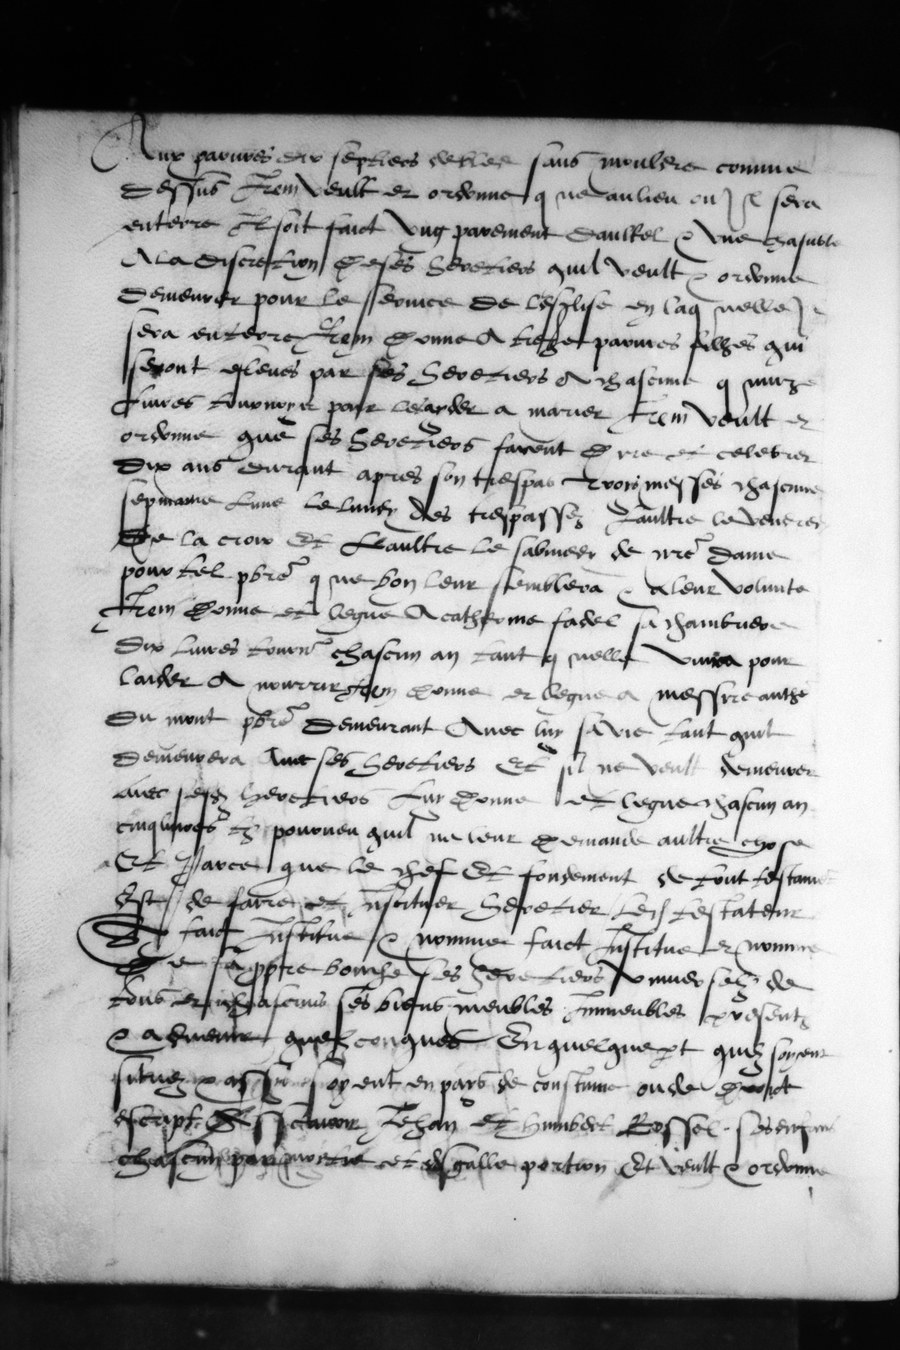 Aux pauvres dix septiers de bled sans mouldre comme
dessus Item veult et ordonne q ue au lieu ou Il sera
enterre Il soit faict Ung parement daultel & Une chasuble
A la discretion de ses heretiers quil veult & ordonne
demeurer pour le service de Leglise en laq uelle Il
sera enterre Item donne A treze pauvres filhes qui
seront esleues par ses heretiers A chascune q uinze
livres tournoys pour les ayder a marier Item veult et
ordonne que ses heretiers facent dire et celebrer
dix ans durant apres son trespas trois messes chascune
sepmaine Lune le lundy des trespasses Laultre le vendredy
De la croix Et Laultre le sabmedy de nre dame
pour tel pbre q ue bon leur semblera & a leur volunte
Item donne et legue A catherine fadel sa chambriere
dix livres tourn chascun an tant q uelle vivra pour
laider A nourrir Item donne et legue a messire anthe
du mont pbre demeurant Avec luy sa vie tant quil
demeurera Avec ses heretiers Et sil ne veult demeurer
avec sesd heretiers Luy donne et legue chascun an
cinq livres tz pourveu quil ne leur demande aultre chose
Et Parce que le chef Et fondement de tout testament
Est de faire et Instituer heretier led testateur
A faict Institue & nomme faict Institue et nomme
De sa ppre bouche ses heretiers universelz de
tous et chascuns ses biens meubles Immeubles presentz
& advenir quelconques En quelque pt quilz soyent
situez & assis soyent en pays de coustume ou de droict
escript Assavoir Jehan et humbert Rossel ses enfans
chascun par moictie et esgalle portion Et veult & ordonne